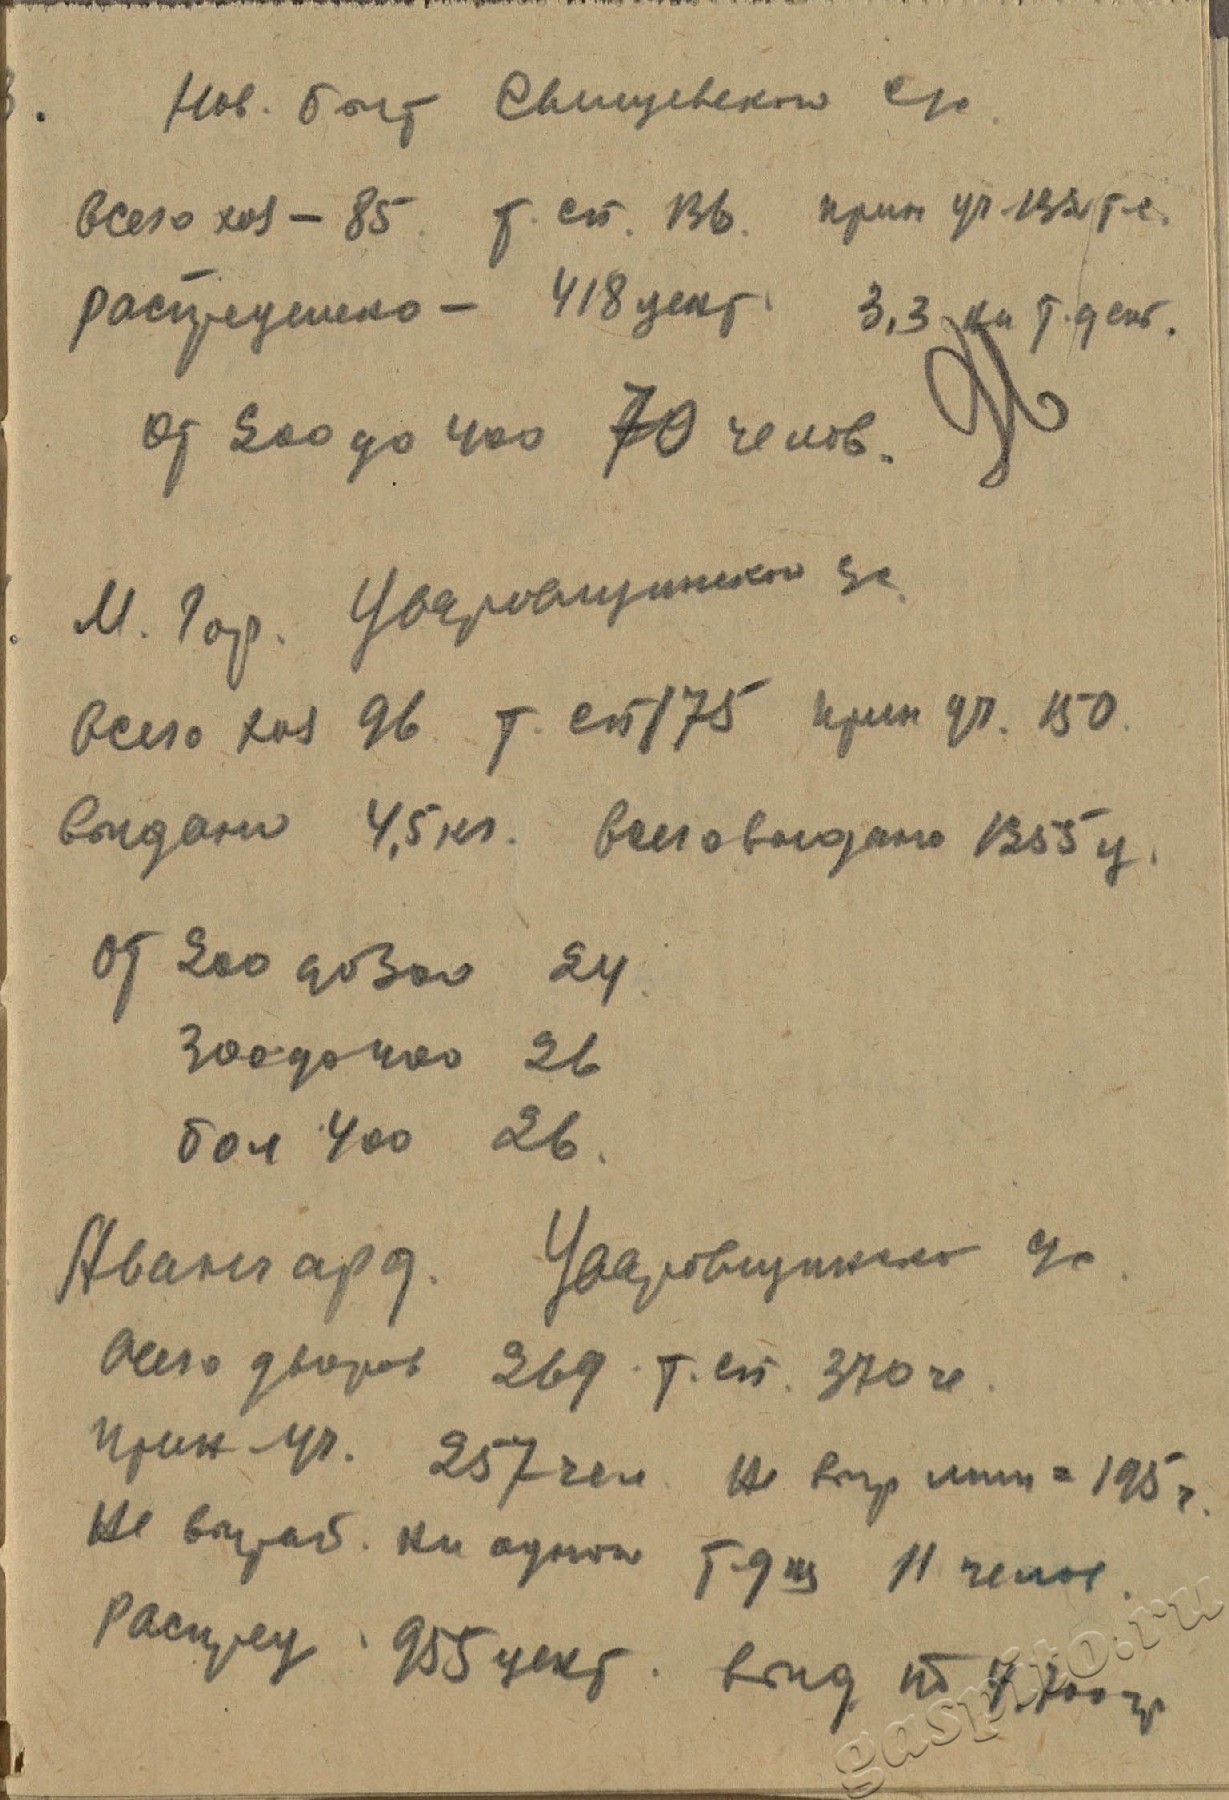 Нов. быт Свищевского с/с.
всего хоз – 85. т. сп. 136. прин уч. 132 т.с.
распределено – 418 цент. 3,3 кл т. дент.
от 200 до 400 70 челов.
М. Гор. Уваровщинского с/с.
всего хоз 96 т. сп 175 прин уч. 150.
выдано 4,5 кг. всего выдано 1355 ц.
от 200 до 300 24.
300 до 400 26
бол 400 26.
Авангард. Уваровщинско с/с.
всего дворов 269. т. сп. 370 че.
прин уч. 257 чел не выр мин = 195 ч.
не выраб. ни одного т-дня 11 челов.
Распред. 955 цент. выд по 700 гр
gaspito.ru